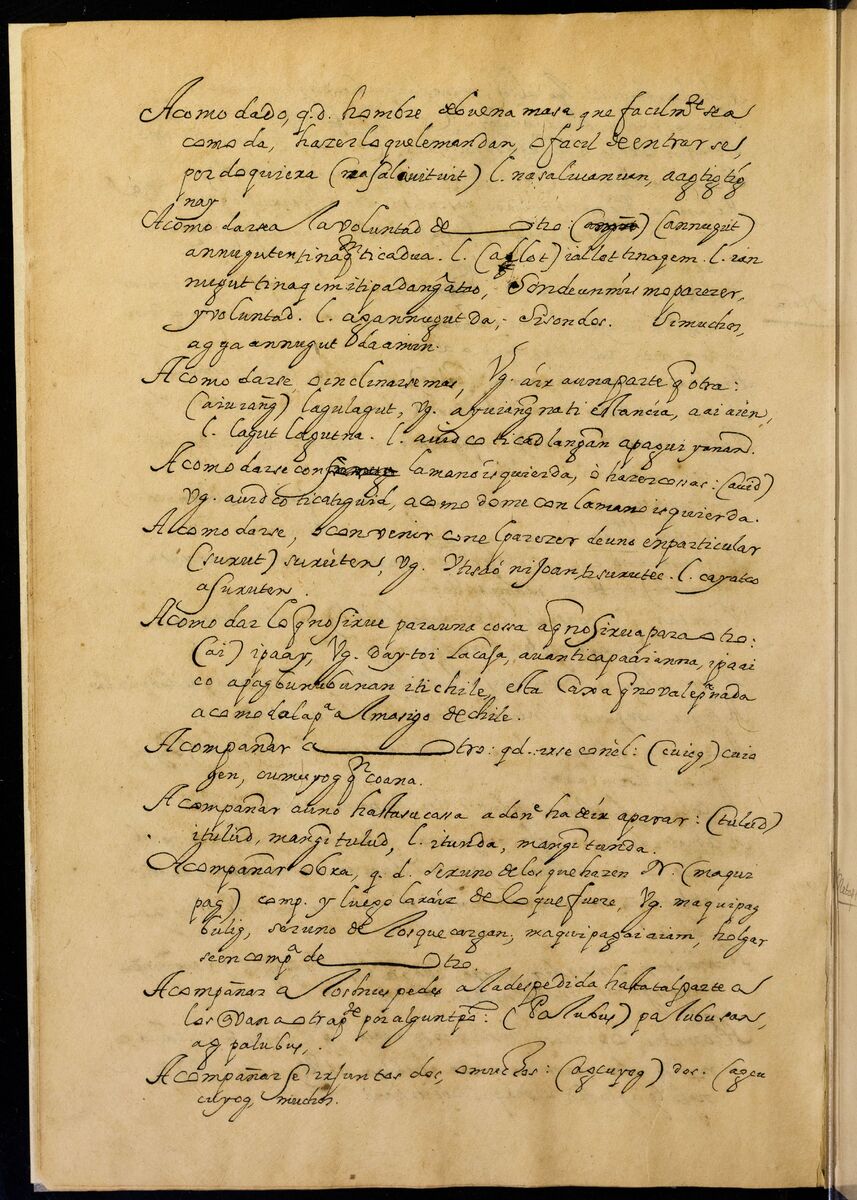 Acomodado, q.d. hombre de buena masa que facilmte se a
comoda, hazer lo quele mandan, o facil de entrar se,
por do quiera (nasaliuituit) l. nasaliuanuan, aagtigtig
nay
Acomodarsea la voluntad de ——— otro: (annugut)
annuguten tinaqm ticadua. l. (allot) iallot tinagem. l. ian
nugut tinagem itipadangatao, Son deun mismo parezer,
y voluntad. l. agannugut da, Si son dos. Si muchos,
agya annugut da amin.
Acomodarse, o inclinarse mas, Vg. áir a una parte q̃ otra:
(aiuiang) lagulagut, Vg. ayuiangna ti estancia, aaiaien,
l. lagut lagutna. l. auid co ti cadlangan apaguiyanan.
Acomodarse con la mano isquierda, ò hazer cossas: (auid)
Vg. auid co ti catiguid, acomodome con la mano isquierda.
Acomodarse, o convenir con el parezer de uno en particular
(surut) surúten, Vg. ni Joan ti surutec. l. cayatco
a suruten.
Acomodar lo q̃ no sirue para una cossa a q̃ no sirua para otro:
(ai) ipaay, Vg. day-toi lacasa, auan ti capaaianna, ipaai
co a pagbunubunan iti chile, esta caxa q̃ no vale pa nada
acomodala pa almasigo de chile.
Acompañar a ——— otro: qd. irse con èl: (cuieg) cuio
gen, cumuyog qm coana.
Acompañar auno hasta su cassa a donde ha de ir a parar: (tulud)
itulud, mangitulud, l. itunda, mangitunda.
Acompañar obra, q. d. ser uno de los que hazen N. (maqui
pag) comp. y luego la ráiz de lo que fuere, Vg. maquipag
bulig, ser uno de los que cargan; maquipagaiaiam, holgar
se en compa de ——— otro.
Acompañar a los huespedes a la despedida hasta tal parte a
los q̃ van a otra pte por algun tpo: (Palubus) palubusan,
ag palubus,
Acompañarse ir juntos dos, o muchos: (agcuyog) dos. (agcu
cuyog, muchos.